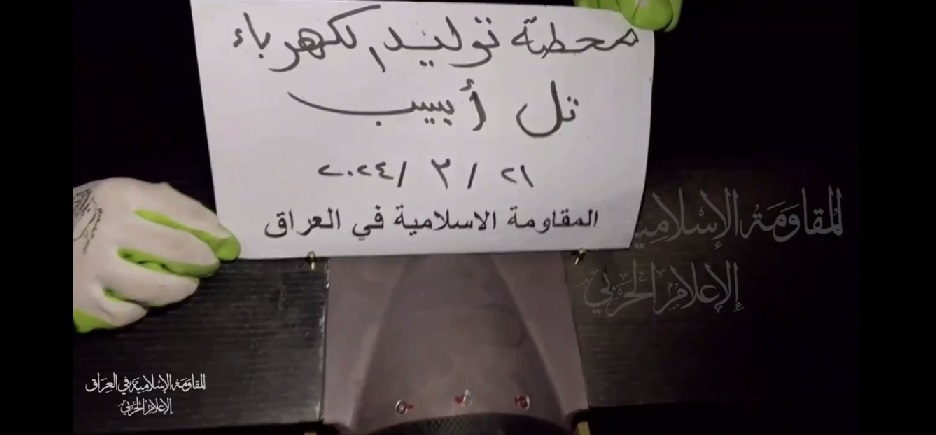 محطة توليد الكهرباء
تل أبيب
٢١ / ٣ / ٢٠٢٤
المقاومة الاسلامية في العراق
المقاومة الإسلامية
الإعلام الحربي
المقاومة الإسلامية في العراق
الإعلام الحربي